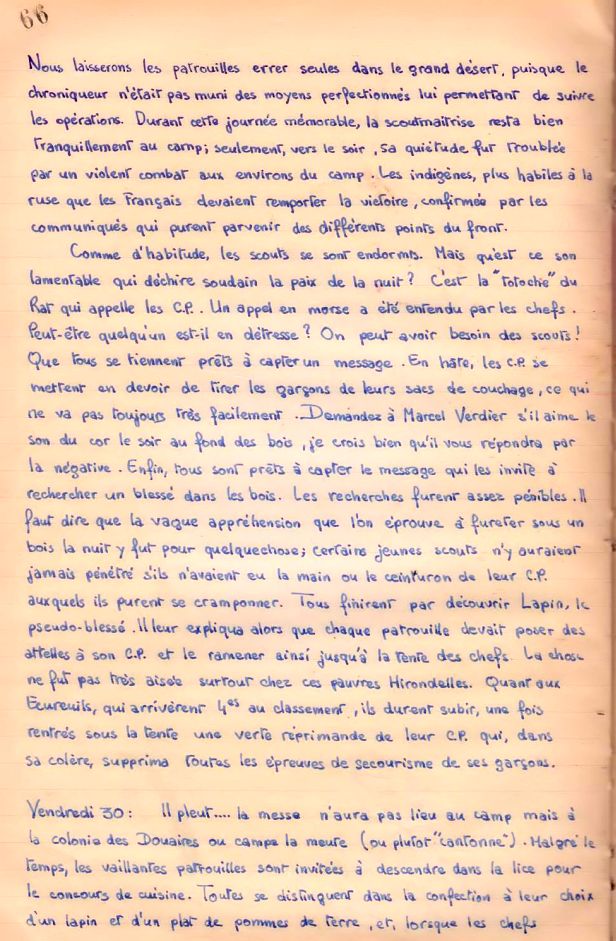 66
Nous laisserons les patrouilles errer seules dans le grand désert, puisque le
chroniqueur n'était pas muni des moyens perfectionnés lui permettant de suivre
les opérations. Durant cette journée mémorable, la scoutmaîtrise resta bien
tranquillement au camp; seulement, vers le soir, sa quiétude fut troublée
par un violent combat aux environs du camp. Les indigènes, plus habiles à la
ruse que les Français devaient remporter la victoire, confirmée par les
communiqués qui purent parvenir des différents points du front.
Comme d'habitude, les scouts se sont endormis. Mais qu'est ce son
lamentable qui déchire soudain la paix de la nuit? C'est la "totoche" du
Rat qui appelle les C.P.. Un appel en morse a été entendu par les chefs.
Peut-être quelqu'un est-il en détresse? On peut avoir besoin des scouts!
Que tous se tiennent prêts à capter un message. En hâte, les C.P. se
mettent en devoir de tirer les garçons de leurs sacs de couchage, ce qui
ne va pas toujours très facilement. Demandez à Marcel Verdier s'il aime le
son du cor le soir au fond des bois, je crois bien qu'il vous répondra par
la négative. Enfin, tous sont prêts à capter le message qui les invite à
rechercher un blessé dans les bois. Les recherches furent assez pénibles. Il
faut dire que la vague appréhension que l'on éprouve à fureter sous un
bois la nuit y fut pour quelquechose; certains jeunes scouts n'y auraient
jamais pénétré s'ils n'avaient eu la main ou le ceinturon de leur C.P.
auxquels ils purent se cramponner. Tous finirent par découvrir Lapin, le
pseudo-blessé. Il leur expliqua alors que chaque patrouille devait poser des
attelles à son C.P. et le ramener ainsi jusqu'à la tente des chefs. La chose
ne fut pas très aisée surtout chez ces pauvres Hirondelles. Quant aux
Ecureuils, qui arrivèrent 4es au classement, ils durent subir, une fois
rentrés sous la tente une verte réprimande de leur C.P. qui, dans
sa colère, supprima toutes les épreuves de secourisme de ses garçons.
Vendredi 30: Il pleut.... la messe n'aura pas lieu au camp mais à
la colonie des Douaires ou campe la meute (ou plutot "cantonne"). Malgré le
temps, les vaillantes patrouilles sont invitées à descendre dans la lice pour
le concours de cuisine. Toutes se distinguent dans la confection à leur choix
d'un lapin et d'un plat de pommes de terre, et, lorsque les chefs